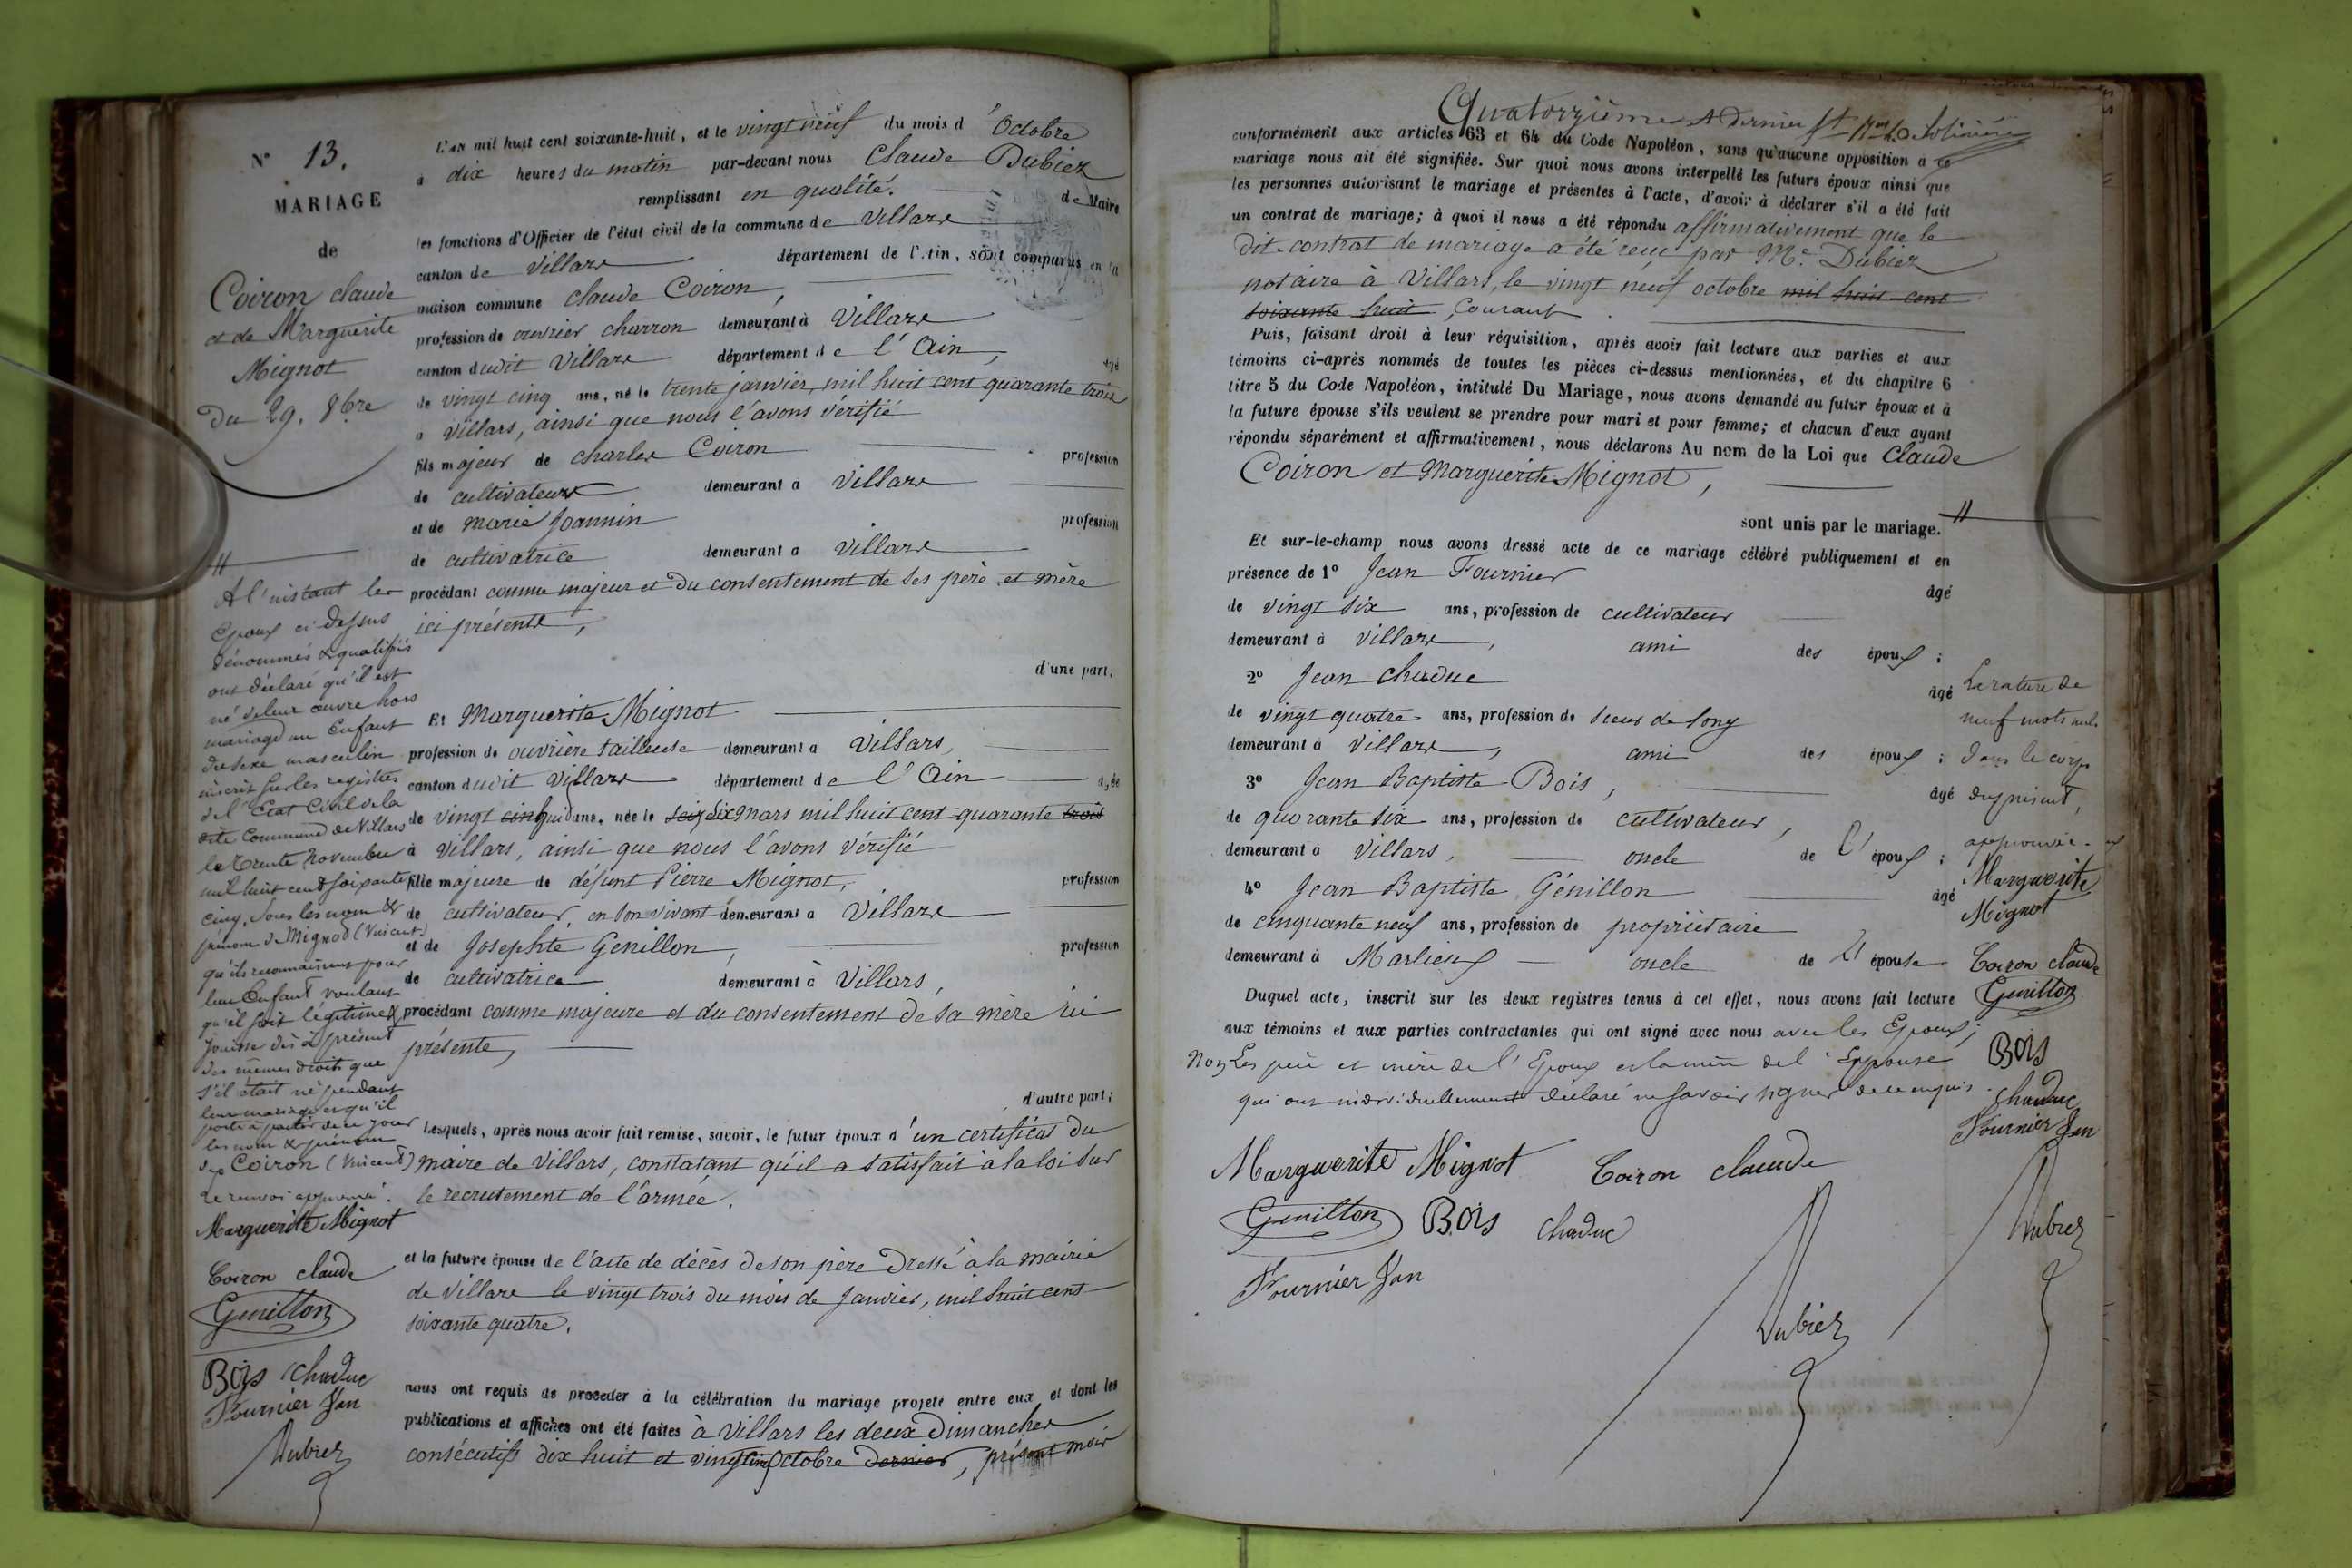 N° 13.
MARIAGE
de
Coiron claude
et de Marguerite
Mignot
Du 29. 8bre
L'an mil huit cent soixante-huit, et le vingt neuf du mois d'Octobre
à dix heures du matin par-devant nous Claude Dubiez
remplissant en qualité. de Maire
les fonctions d'Officier de l'état civil de la commune de Villars
canton de Villars département de l'Ain, sont comparus en la
maison commune Claude Coiron,
profession de ouvrier charron demeurant à Villars
canton dudit Villars département de l'Ain, âgé
de vingt cinq ans, né le trente janvier, mil huit cent quarante trois
à Villars, ainsi que nous l'avons vérifié
fils majeur de Charles Coiron profession
de cultivateur demeurant à Villars
et de Marie Joannin profession
de cultivatrice demeurant à Villars
procédant comme majeur et du consentement de ses père et mère
ici présents,
d'une part,
Et Marguerite Mignot
profession de ouvrière tailleuse demeurant à Villars,
canton dudit Villars département de l'Ain âgée
de vingt cinq huit ans, née le dix mars mil huit cent quarante trois
à Villars, ainsi que nous l'avons vérifié
fille majeure de défunt Pierre Mignot, profession
de cultivateur, en son vivant demeurant à Villars
et de Josephte Genillon, profession
de cultivatrice demeurant à Villars,
procédant comme majeure et du consentement de sa mère ici
présente,
d'autre part;
Lesquels, après nous avoir fait remise, savoir, le futur époux d'un certificat du
maire de Villars, constatant qu'il a satisfait à la loi sur
le recrutement de l'armée.
et la future épouse de l'acte de décès de son père dressé à la mairie
de Villars le vingt trois du mois de Janvier, mil huit cent
soixante quatre.
nous ont requis de procéder à la célébration du mariage projeté entre eux et dont les
publications et affiches ont été faites à Villars les deux Dimanches
consécutifs dix huit et vingt cinq Octobre dernier, présent mois
A l'instant les
Epoux ci dessus
dénommés & qualifiés
ont déclaré qu'il est
né de leur œuvre hors
mariage un Enfant
du sexe masculin
inscrit sur les registres
de l'Etat Civil de la
dite Commune de Villars
le trente Novembre
mil huit cent soixante
cinq, sous les nom &
prénom de Mignot (Vincent)
qu'ils reconnaissent pour
leur Enfant voulant
qu'il soit légitime &
jouisse dès à présent
des mêmes droits que
s'il était né pendant
leur mariage et qu'il
porte à partir de ce jour
les nom & prénom
de Coiron (Vincent)
Le renvoi approuvé.
Marguerite Mignot
Coiron claude
Genillon
Bois Chaduc
Fournier Jan
Dubiez
Quatorzième & Dernier ft
conformément aux articles 63 et 64 du Code Napoléon, sans qu'aucune opposition à ce
mariage nous ait été signifiée. Sur quoi nous avons interpellé les futurs époux ainsi que
les personnes autorisant le mariage et présentes à l'acte, d'avoir à déclarer s'il a été fait
un contrat de mariage; à quoi il nous a été répondu affirmativement que le
dit contrat de mariage a été reçu par Me Dubiez
notaire à Villars, le vingt neuf octobre mil huit cent
soixante huit, courant.
Puis, faisant droit à leur réquisition, après avoir fait lecture aux parties et aux
témoins ci-après nommés de toutes les pièces ci-dessus mentionnées, et du chapitre 6
titre 5 du Code Napoléon, intitulé Du Mariage, nous avons demandé au futur époux et à
la future épouse s'ils veulent se prendre pour mari et pour femme; et chacun d'eux ayant
répondu séparément et affirmativement, nous déclarons Au nom de la Loi que Claude
Coiron et Marguerite Mignot,
sont unis par le mariage.
Et sur-le-champ nous avons dressé acte de ce mariage célébré publiquement et en
présence de 1° Jean Fournier âgé
de vingt six ans, profession de cultivateur
demeurant à Villars, ami des époux;
2° Jean Chaduc âgé
de vingt quatre ans, profession de scieur de long
demeurant à Villars, ami des époux;
3° Jean Baptiste Bois, âgé
de quarante six ans, profession de cultivateur,
demeurant à Villars, oncle de l'époux;
4° Jean Baptiste Génillon âgé
de cinquante neuf ans, profession de propriétaire
demeurant à Marlieux oncle de l'épouse
Duquel acte, inscrit sur les deux registres tenus à cet effet, nous avons fait lecture
aux témoins et aux parties contractantes qui ont signé avec nous avec les Epoux;
Non Les père et mère de l'Epoux et la mère de l'Epouse
qui ont individuellement déclaré ne savoir signer de ce enquis.
Marguerite Mignot Coiron claude
Genillon Bois Chaduc
Fournier Jan
Dubiez
La rature de
neuf mots nuls
dans le corps
du présent,
approuvée.
Marguerite
Mignot
Coiron claude
Genillon
Bois
Chaduc
Fournier Jan
Dubiez